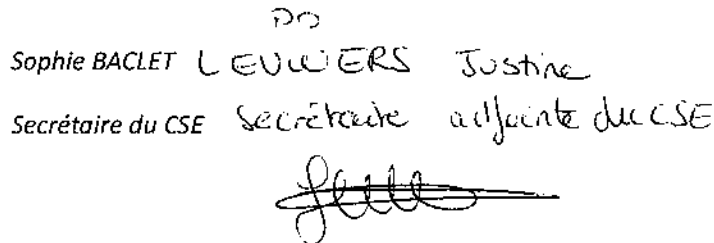 PO
Sophie BACLET LEULLIERS Justine
Secrétaire du CSE Secrétaire adjointe du CSE